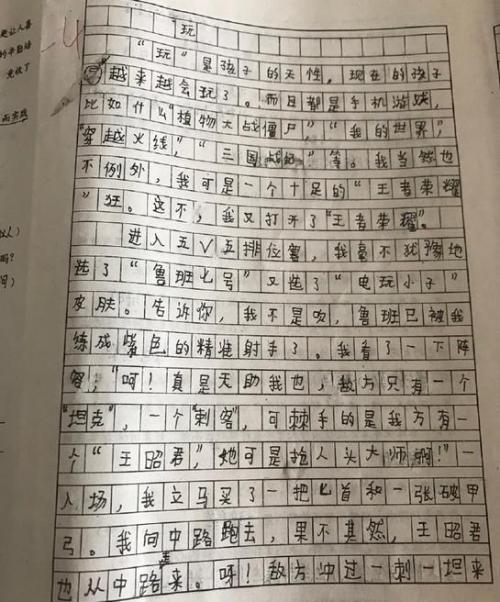 玩
-4
“玩”是孩子的天性，现在的孩子
越来越会玩了。而且都是手机游戏，
比如什么“植物大战僵尸”，“我的世界”，
“穿越火线”，“三国战纪”等。我当然也
不例外，我可是一个十足的“王者荣耀
”狂。这不，我又打开了“王者荣耀”。
进入五V五排位赛，我毫不犹豫地
选了“鲁班七号”又选了“电玩小子”
皮肤。告诉你，我不是吹，鲁班已被我
练成紫色的精准射手了。我看了一下阵
容，“呵！真是天助我也，敌方只有一个
“坦克”，一个“刺客”，可棘手的是我方有一
个“王昭君”，她可是抢人头大师啊！”一
入场，我立马买了一把匕首和一张破甲
弓。我向中路跑去，果不其然，王昭君
也从中路走来。呀！敌方冲过一刺一坦来
是让人喜
的半自培
竞收了
而实践